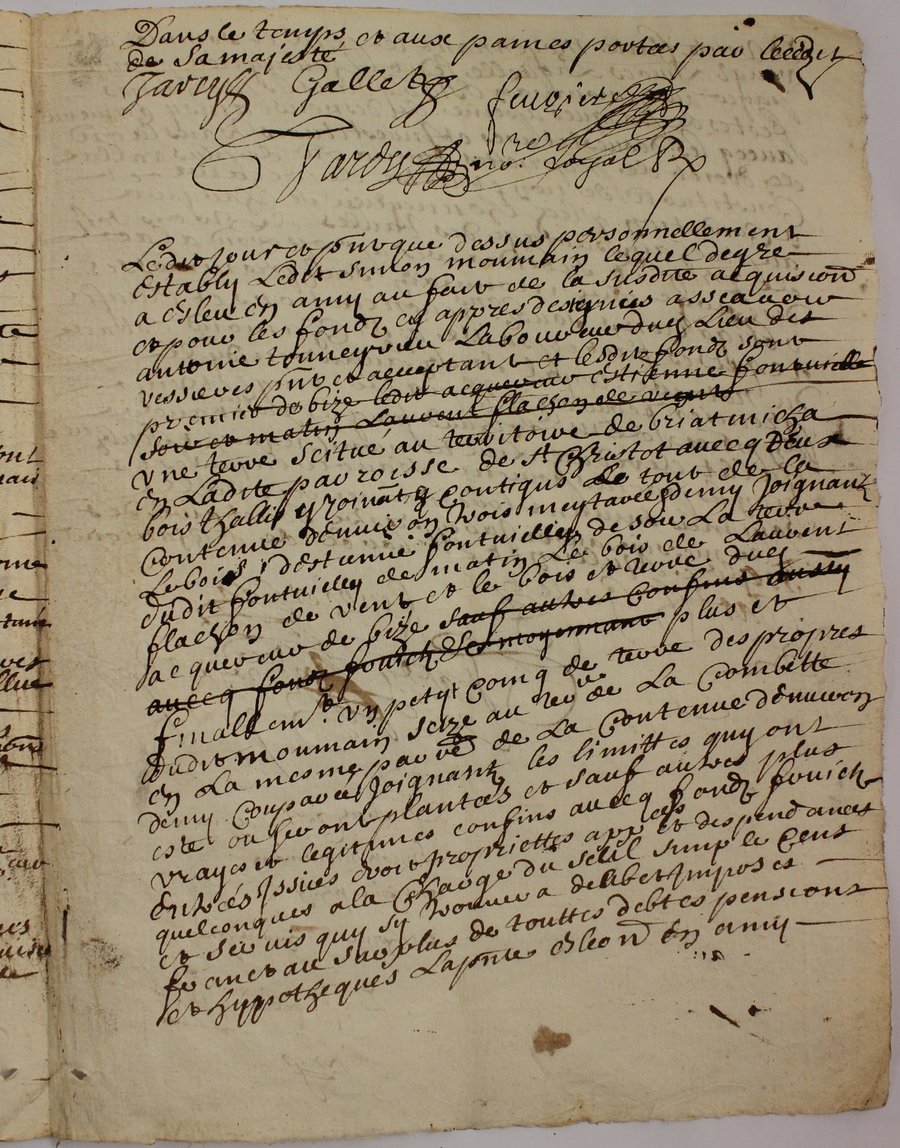 Dans le temps et aux paines portees par leedit
de Sa majesté
Tardy Gallet feurier
Tardy no.re royal R
Ledit jour et pnt que dessus personnellement
estably Ledit simon moumain lequel de gre
a esleu en amy au fait de la susdite acquision
et pour les fondz cy appres designés asscavoir
antoine tonneyrieu Laboureur du Lieu des
vessieres pnt et acceptant et lesditz fondz sont
premier de bize ledit acquereur estienne fontvieille
soir et matin Laurent flachon de vent
une terre scitue au territoire de briatmicha
en Ladite parroisse de st Christot avecq deux
bois thallis y joinants contigus Le tout de la
contenue denuiron trois meytarees demy Joignant
Le bois destienne fontuielle de soir La terre
dudit fontuielle de matin Le bois de Laurent
flachon de vent et le bois et terre dud
acquereur de bize sauf autres confins aussy
avecq fondz fruictz et moyennant plus et
finallemt. un petyt coing de terre des propres
dudit moumain scize au terre de La Combette
en La mesme parre de La Contenue denuiron
demy couparee Joignant les limittes quy ont
este ou seront plantees et sauf autres plus
vrayes et legitimes confins avecq fondz fruictz
entrées Issües droit proprietes appces et despendances
quelconques a la Charge du seul simple Cens
et seruis quy sy trouuera debet Imposes
franc et au surplus de touttes debtes pensions
et hyppotheques La pnte esleon en amy